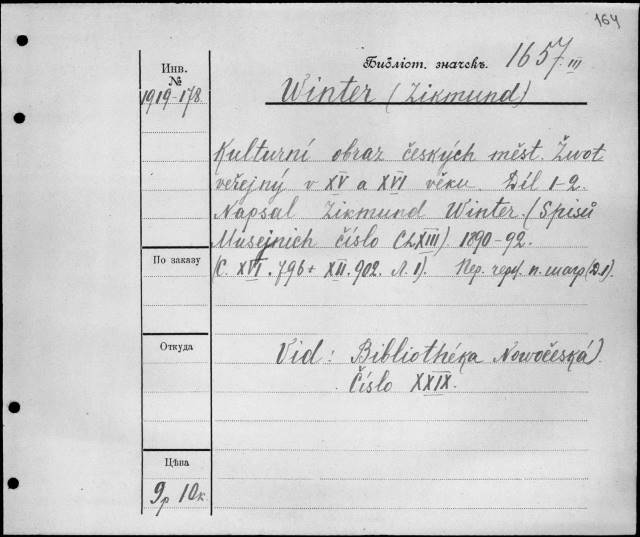 164
Библіот. значекъ. 1657.III
Инв.
№
1919-178.
Winter (Zikmund)
Kulturní obraz českých měst. Život
veřejný v XV a XVI věku. Díl 1-2.
Napsal Zikmund Winter. (Spisů
Musejních číslo CLXIII) 1890-92.
По заказу
(С. XVI. 796 + XII. 902. Л. 1). Пер.
Откуда
Vid: Bibliothéka Nowočeská)
Číslo XXIX.
Цѣна
9р 10к.